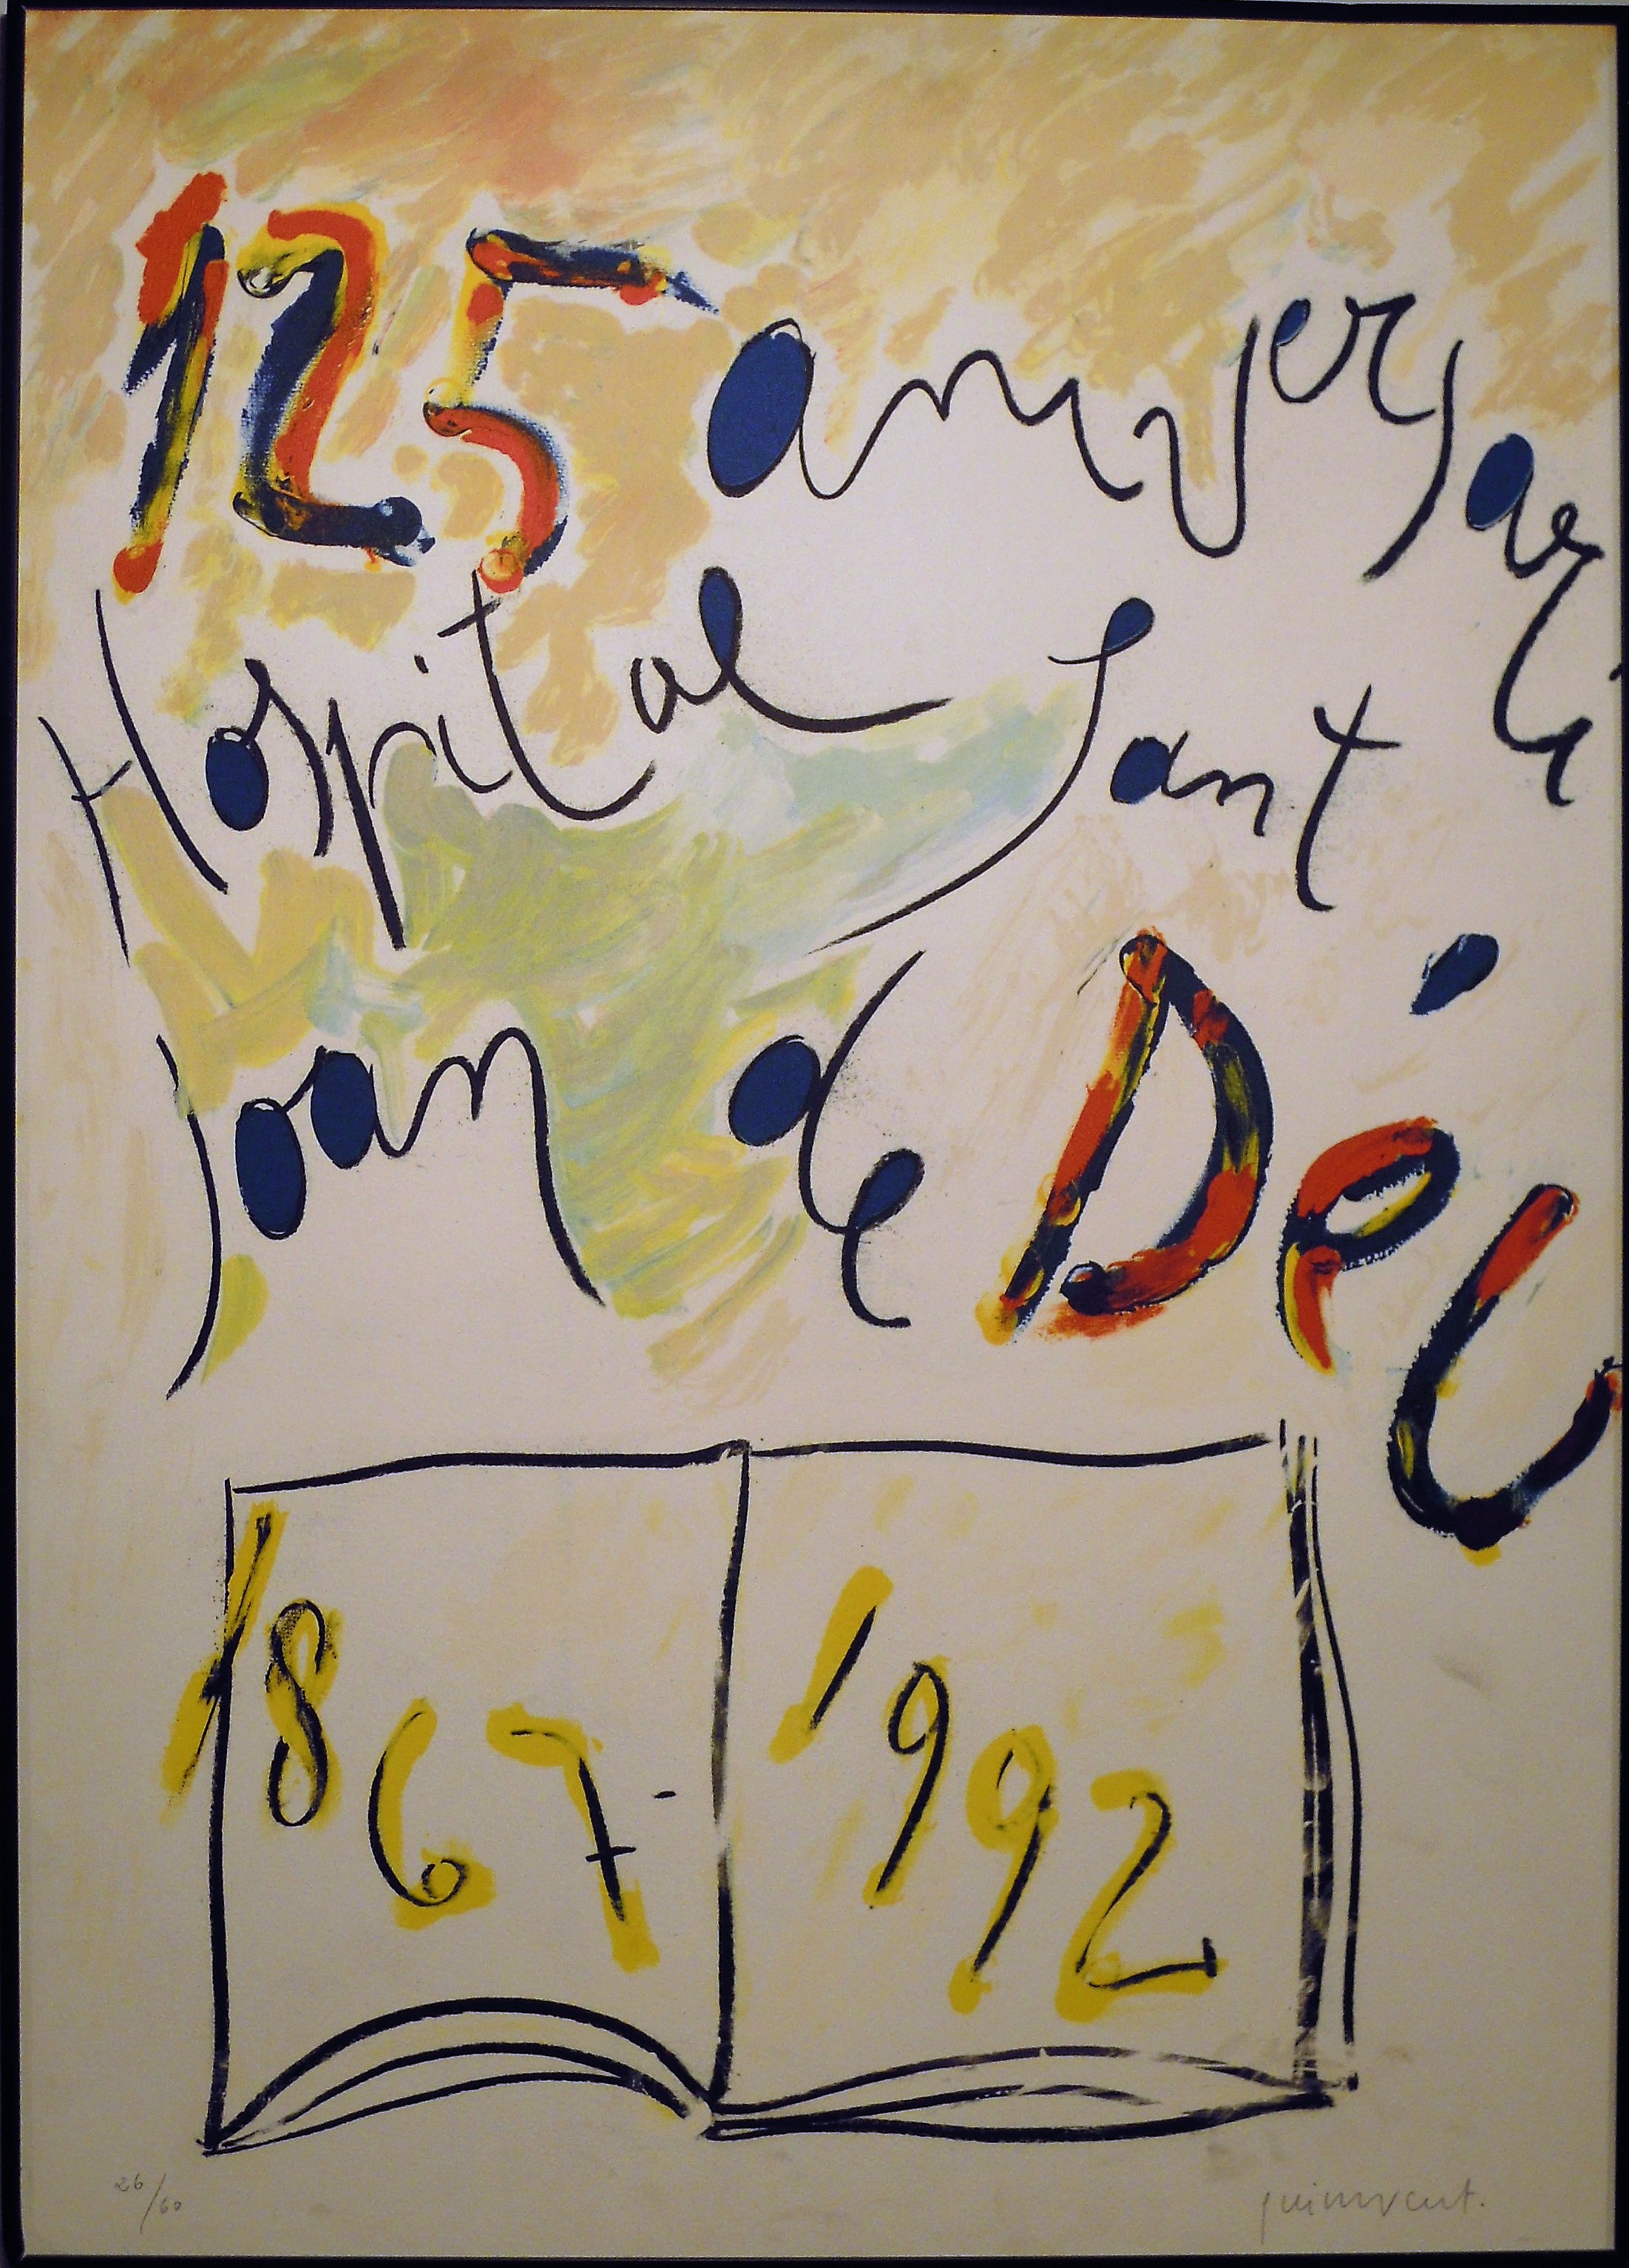 125 aniversari
Hospital Sant
Joan de Déu
1867-1992
26/60